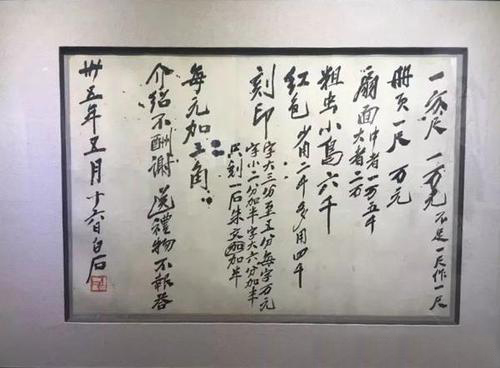 一方尺 一万元 不足一尺作一尺
冊頁一尺 万元
扇面 中者一万五千
大者二万
粗虫小鳥六千
紅色少用二千多用四千
刻印 字大三分至五分每字万元
字小二分加半字大六分加半
刻一石朱文加半
每元加二角
介紹不酬謝 送禮物不報答
卅五年五月十六日白石